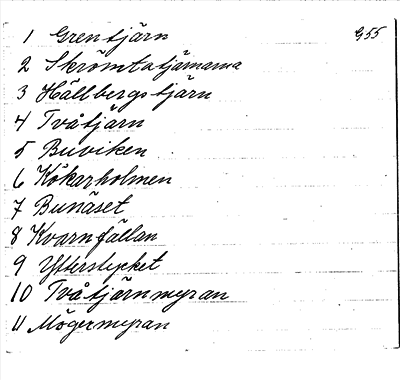 1 Grentjärn G.55
2 Skrömtatjärnarna
3 Hällbergstjärn
4 Tvåtjärn
5 Buviken
6 Kökarholmen
7 Bunäset
8 Kvarnfällan
9 Ytterstycket
10 Tvåtjärnmyran
11 Mögermyran